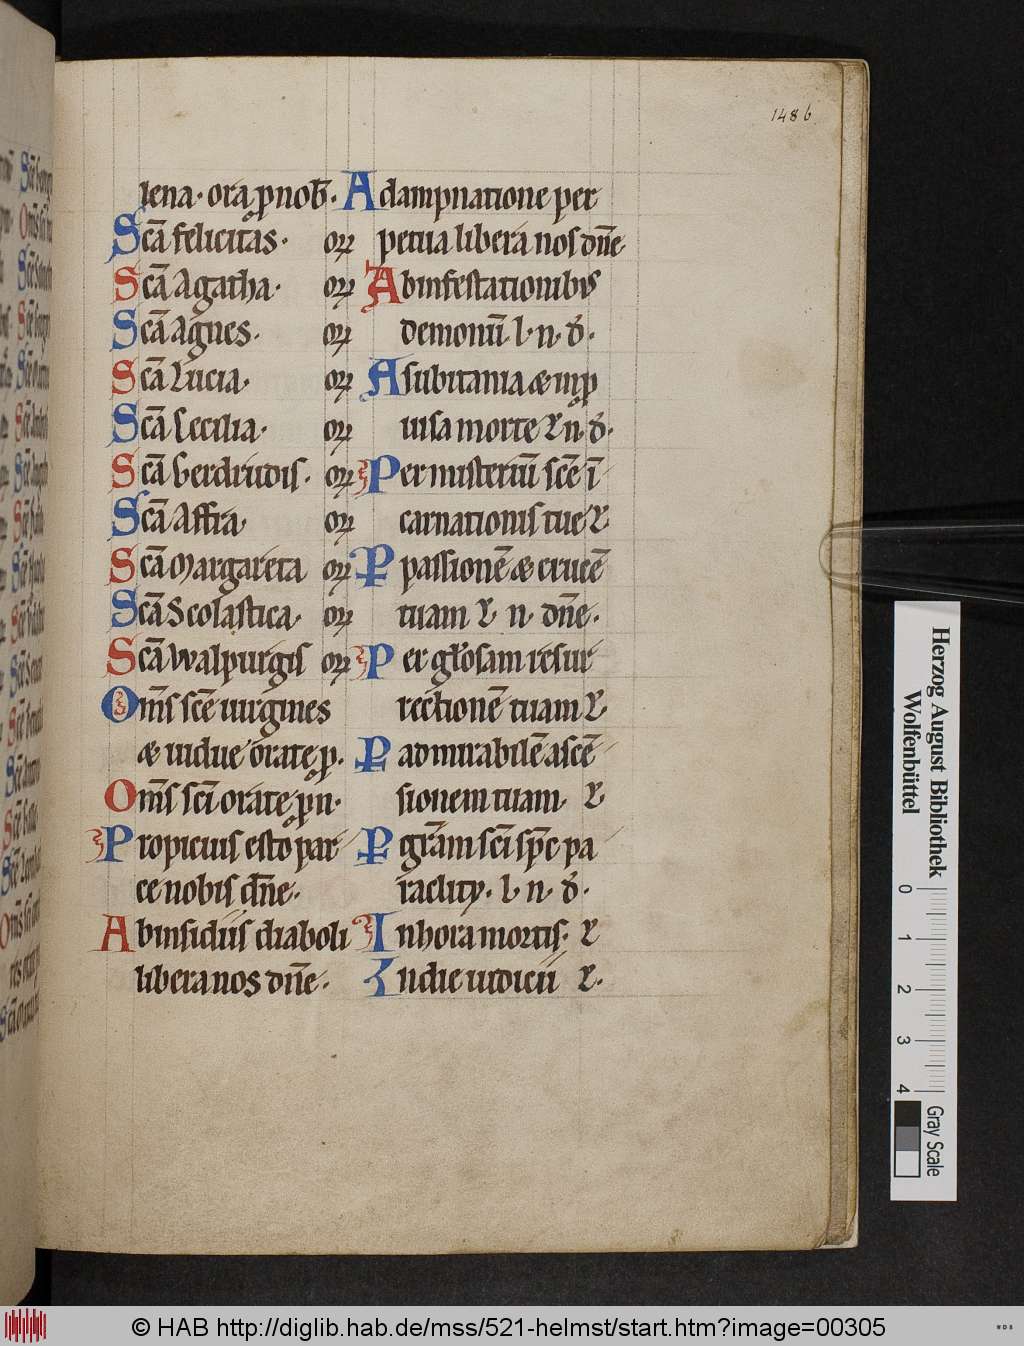 148b
lena· ora ꝓ nob̄·
Scā felicitas· oꝝ
Scā Agatha· oꝝ
Scā Agnes· oꝝ
Scā Lucia· oꝝ
Scā Cecilia· oꝝ
Scā Gerdrudis· oꝝ
Scā Affra· oꝝ
Scā Margareta oꝝ
Scā Scolastica· oꝝ
Scā Walpurgis oꝝ
Om̄s scē uirgines
æ uidue orate ꝓ·
Om̄s sci orate ꝓ n·
Propicius esto par
ce nobis dn̄e·
Ab insidiis diaboli
libera nos dn̄e·
A dampnatione per
petua libera nos dn̄e·
Ab infestationibus
demonū l· n· d̄·
A subitania æ inp
uisa morte l n· d̄·
Per misteriū scē ī
carnationis tue l
P passionē æ crucē
tuam l· n· dn̄e·
Per gl̄osam resur
rectionē tuam l·
P admirabilē ascē
sionem tuam· l
P grām sci spc pa
raclity· l· n· d̄·
In hora mortis· l
In die iudicii l·
Herzog August Bibliothek
Wolfenbüttel
0 1 2 3 4
Gray Scale
© HAB http://diglib.hab.de/mss/521-helmst/start.htm?image=00305